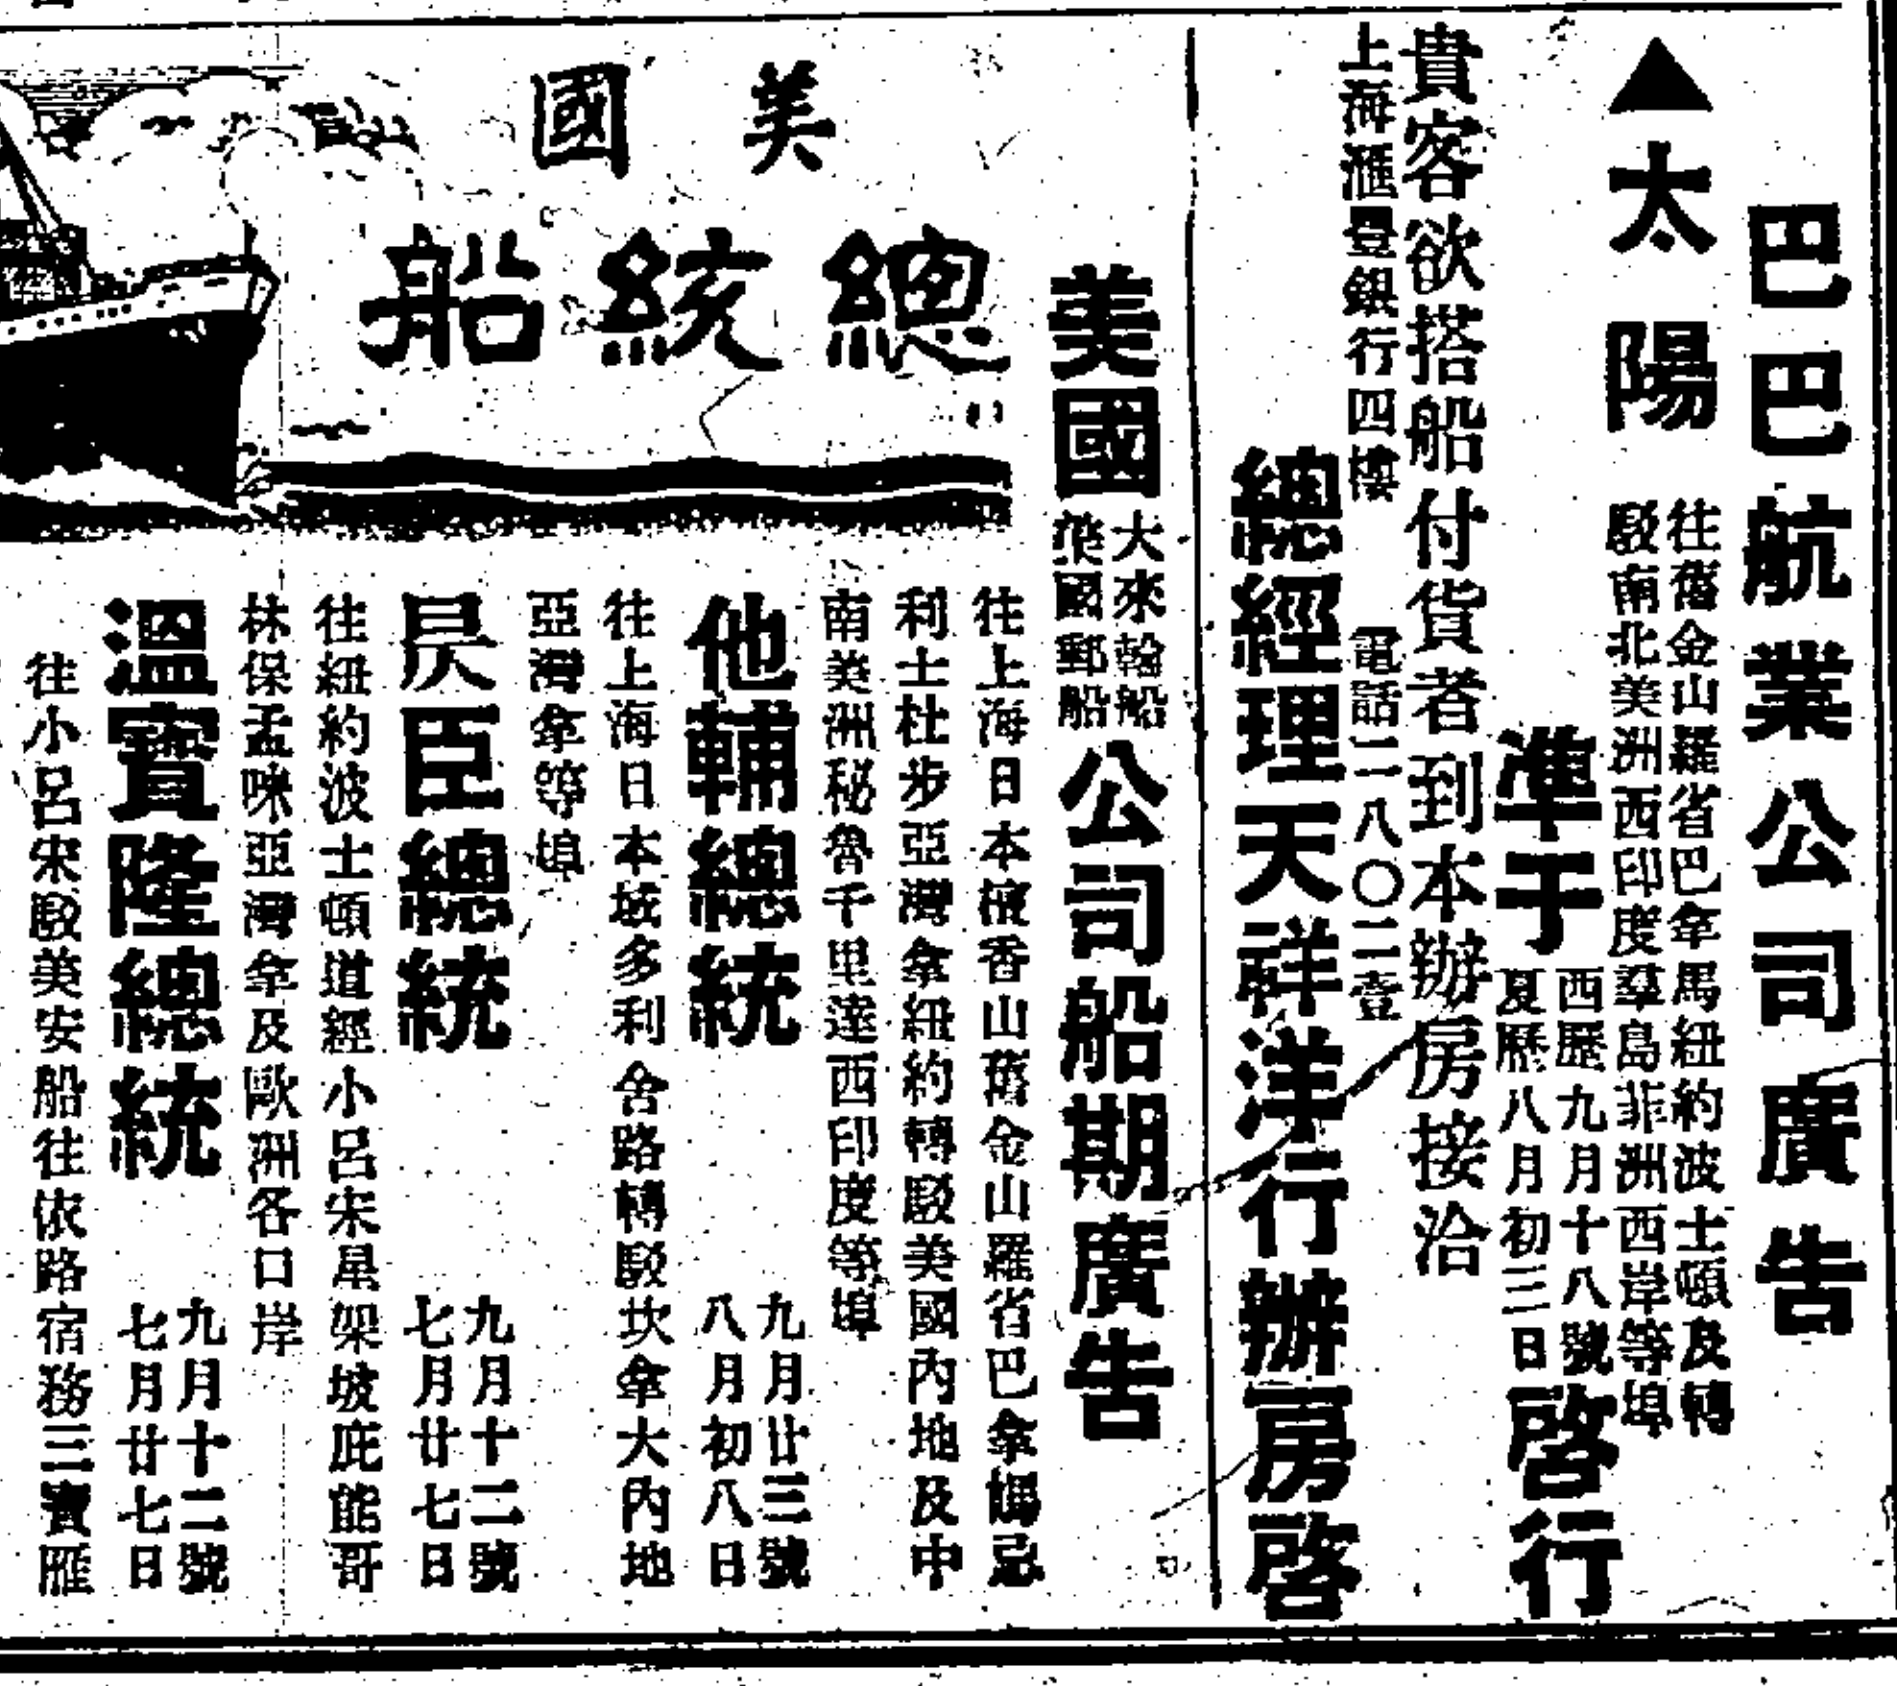 巴巴航業公司廣告
▲太陽
往舊金山羅省巴拿馬紐約波士頓及轉
駁南北美洲西印度羣島菲洲西岸等埠
準于
西歷九月十八號
夏歷八月初三日
啓行
貴客欲搭船付貨者到本辦房接洽
上海滙豐銀行四樓
電話二八〇二壹
總經理天祥洋行辦房啓
美國
大來輪船
郵船
公司船期廣告
美國
總統船
往上海日本檀香山舊金山羅省巴拿馬忌
利士杜步亞灣拿紐約轉駁美國內地及中
南美洲秘魯千里達西印度等埠
他輔總統
九月廿三號
八月初八日
往上海日本域多利舍路轉駁坎拿大內地
亞灣拿等埠
臣總統
九月十二號
七月廿七日
往紐約波士頓道經小呂宋星架坡庇能哥
林保孟咪亞灣拿及歐洲各口岸
溫寶隆總統
九月十二號
七月廿七日
往小呂宋駁美安船往依路宿務三寶雁